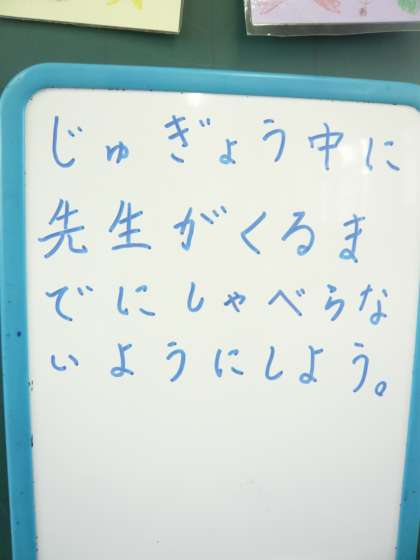 じゅぎょう中に
先生がくるま
でにしゃべらな
いようにしよう。